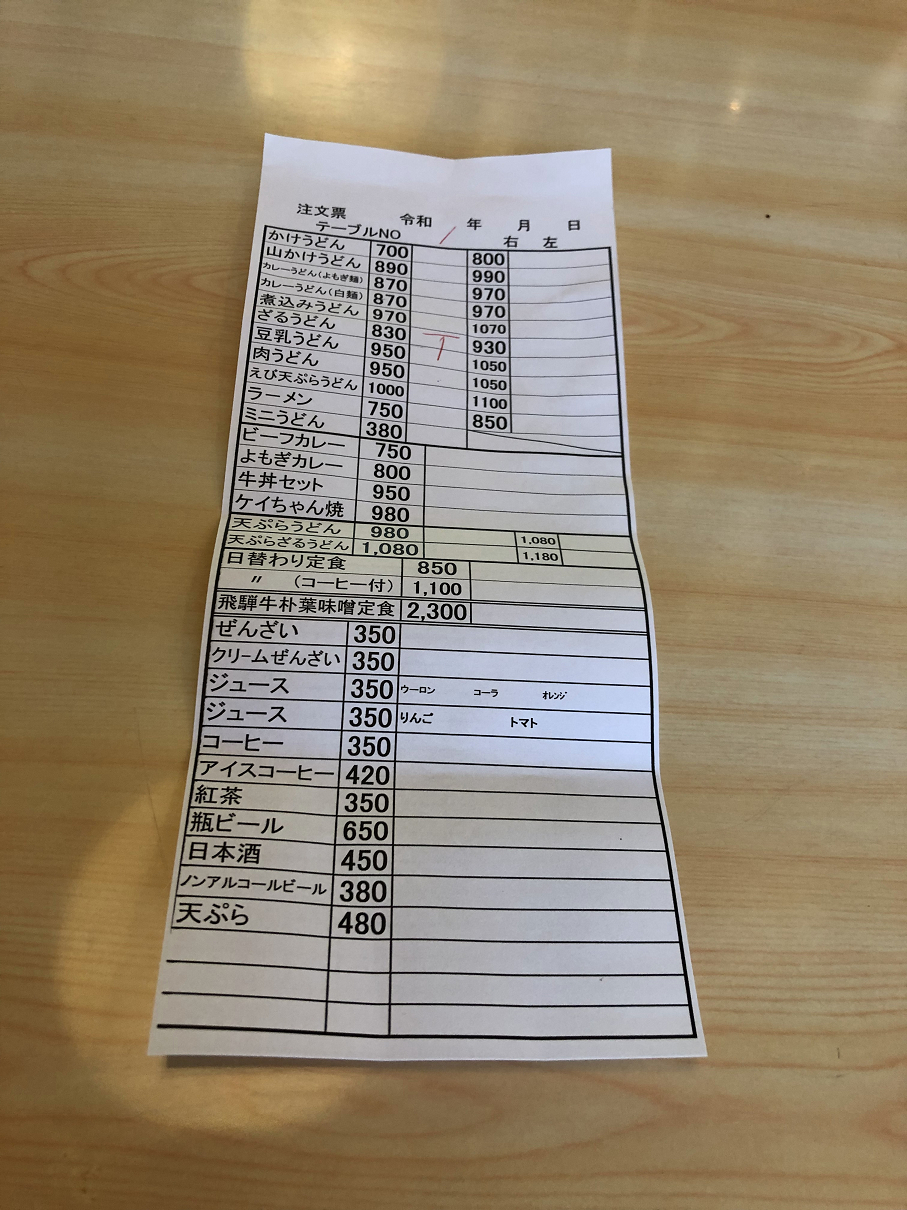 注文票 令和 年 月 日
テーブルNO 右 左
かけうどん 700 800
山かけうどん 890 990
カレーうどん(よもぎ麺) 870 970
カレーうどん(白麺) 870 970
煮込みうどん 970 1070
ざるうどん 830 930
豆乳うどん 950 1050
肉うどん 950 1050
えび天ぷらうどん 1000 1100
ラーメン 750 850
ミニうどん 380
ビーフカレー 750
よもぎカレー 800
牛丼セット 950
ケイちゃん焼 980
天ぷらうどん 980 1,080
天ぷらざるうどん 1,080 1,180
日替わり定食 850
〃 (コーヒー付) 1,100
飛騨牛朴葉味噌定食 2,300
ぜんざい 350
クリームぜんざい 350
ジュース 350 ウーロン コーラ オレンジ
ジュース 350 りんご トマト
コーヒー 350
アイスコーヒー 420
紅茶 350
瓶ビール 650
日本酒 450
ノンアルコールビール 380
天ぷら 480